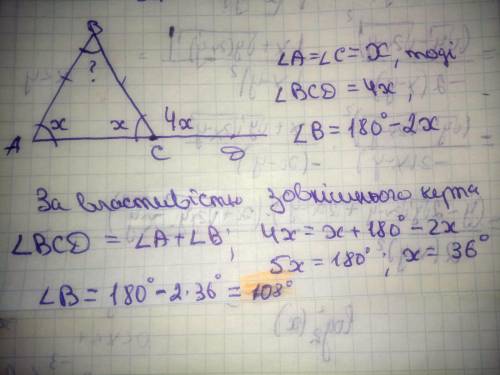 B
?
x x 4x
A C D
∠A=∠C=x, тоді
∠BCD = 4x;
∠B = 180° - 2x
За властивістю зовнішнього кута
∠BCD = ∠A+∠B; 4x = x + 180° - 2x
5x = 180°; x = 36°
∠B = 180° - 2·36° = 108°